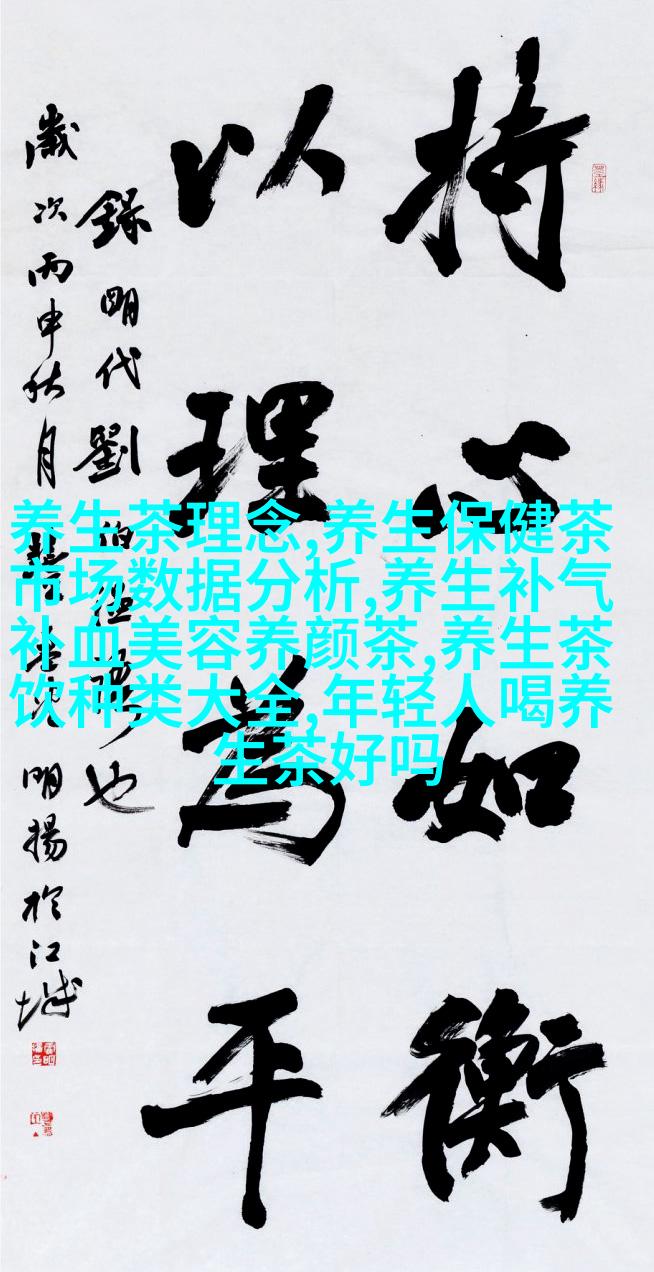 持心如衡
以理為平
錄明代劉伯溫語也
歲次丙申秋月
明揚於江城
养生茶理念,养生保健茶
市场数据分析,养生补气
补血美容养颜茶,养生茶
饮种类大全,年轻人喝养
生茶好吗